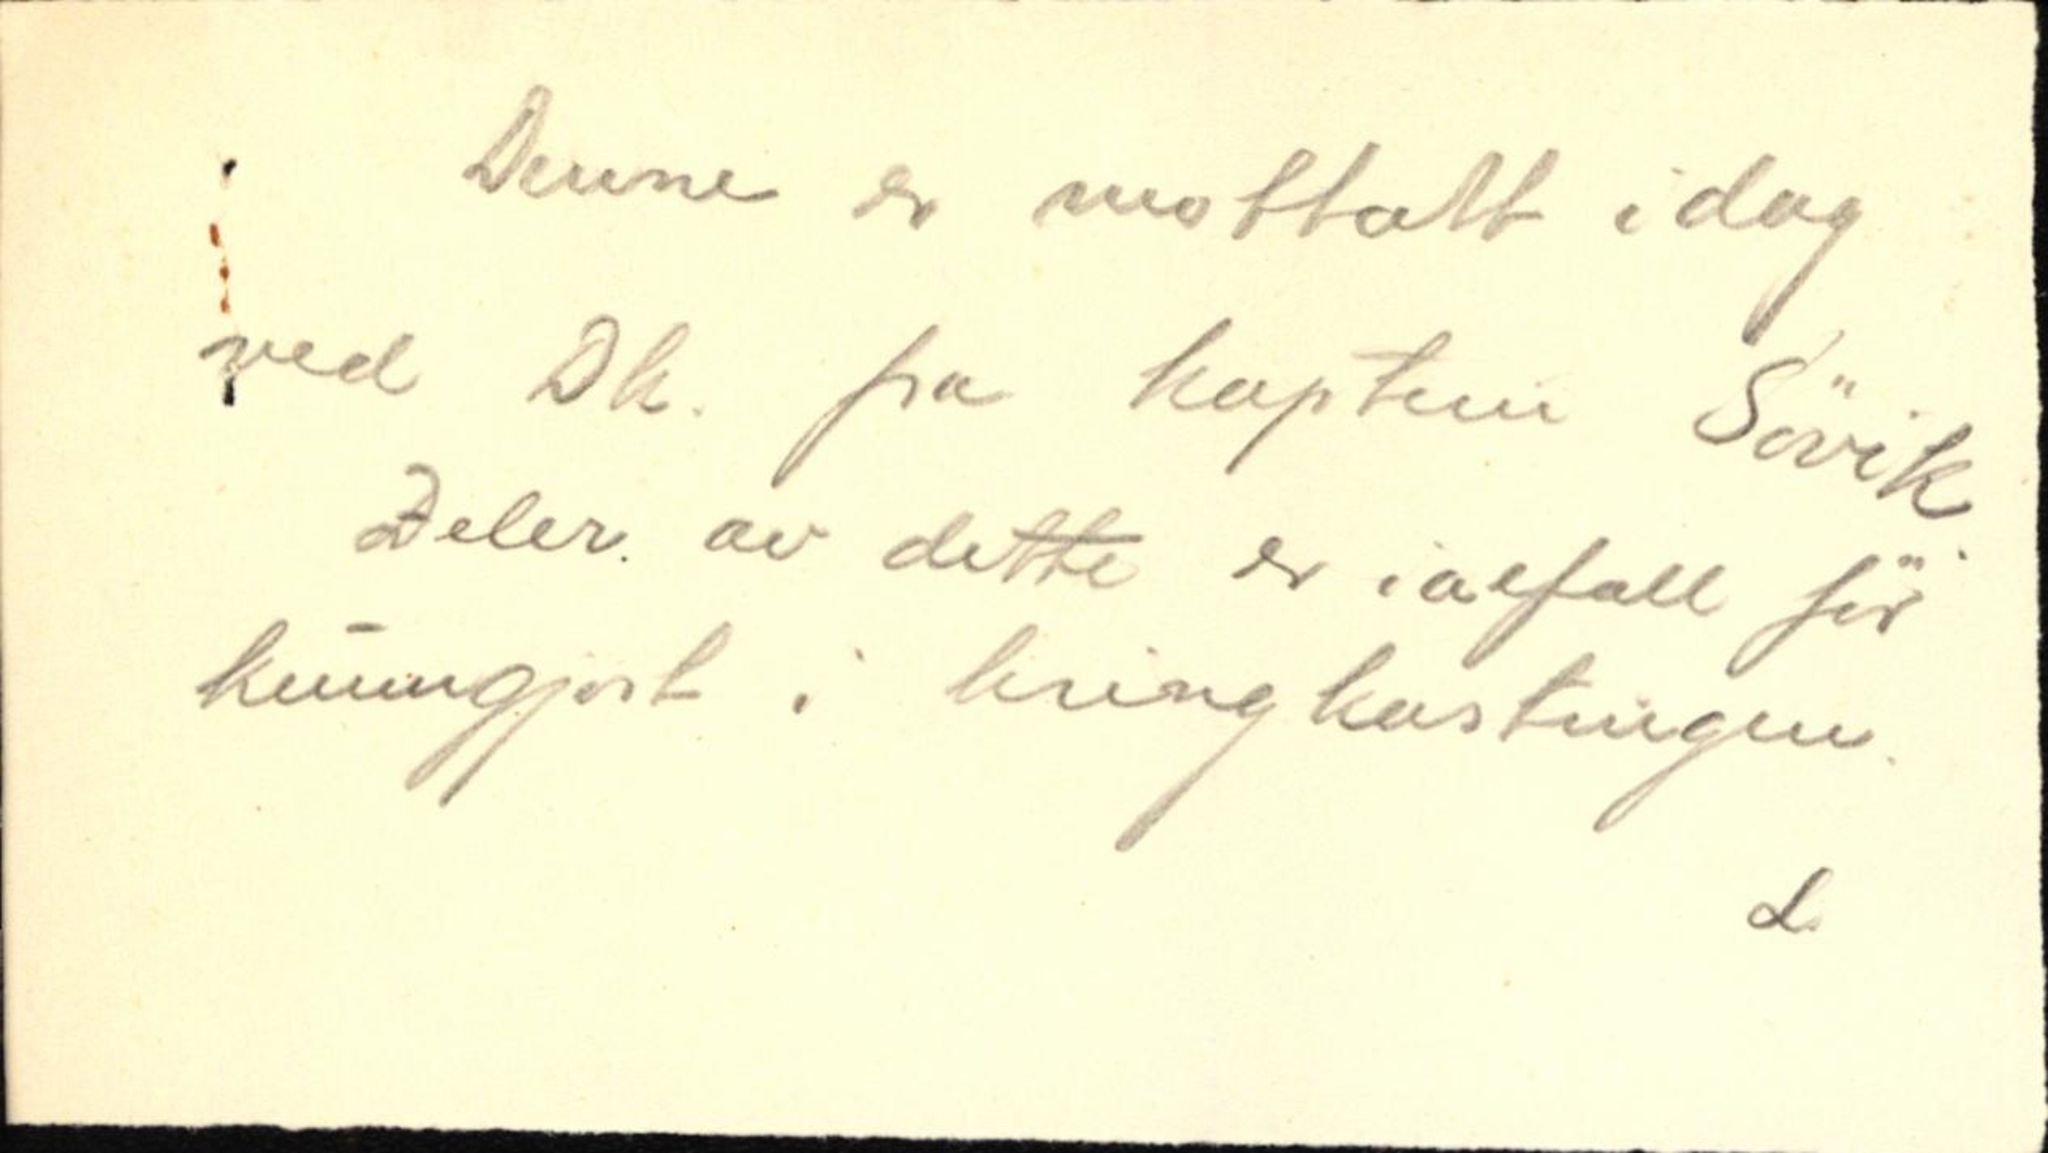 Denne er mottatt idag
ved Dk. fra kaptein Sövik
Deler av dette er iallfall för
kunngjort i kringkastingen.
L